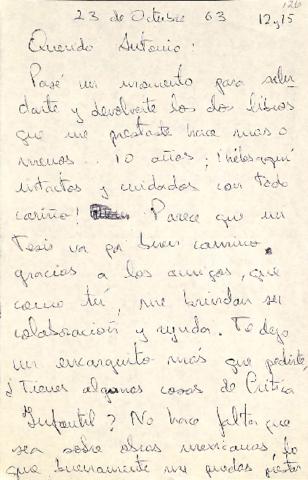 126
23 de Octubre 63 12y15
Querido Antonio:
Pasé un momento para salu-
darte y devolverte los dos libros
que me prestaste hace mas o
menos... 10 años; ¡hélos aquí
intactos y cuidados con todo
cariño! Parece que mi
Tesis va por buen camino,
gracias a los amigos, que
como tú, me brindan su
colaboración y ayuda. Te dejo
un encarguito más que pedirte,
¿Tienes algunas cosas de Crítica
Infantil? No hace falta que
sea sobre obras mexicanas, lo
que buenamente me puedas prestar